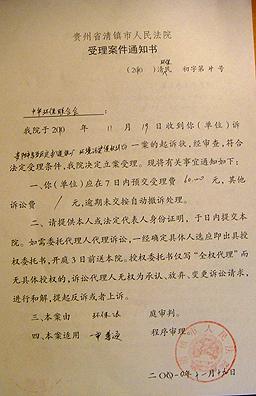 贵州省清镇市人民法院
受理案件通知书
(20 )清 环保 民 初字第 4 号
中华环保联合会:
我院于20 年 11 月 19 日收到你(单位)诉
一案的起诉状,经审查,符合
法定受理条件,我院决定立案受理。现将有关事宜通知如下:
一、你(单位)应在7日内预交受理费 元,其他
诉讼费 / 元,逾期未交按自动撤诉处理。
二、请提供本人或法定代表人身份证明,于日内提交本
院。如需委托代理人代理诉讼,一经确定具体人选应即出具授
权委托书,开庭3日前送本院。授权委托书仅写“全权代理”而
无具体授权的,诉讼代理人无权为承认、放弃、变更诉讼请求,
进行和解,提起反诉或者上诉。
三、本案由 环保法 庭审判。
四、本案适用 程序审理。